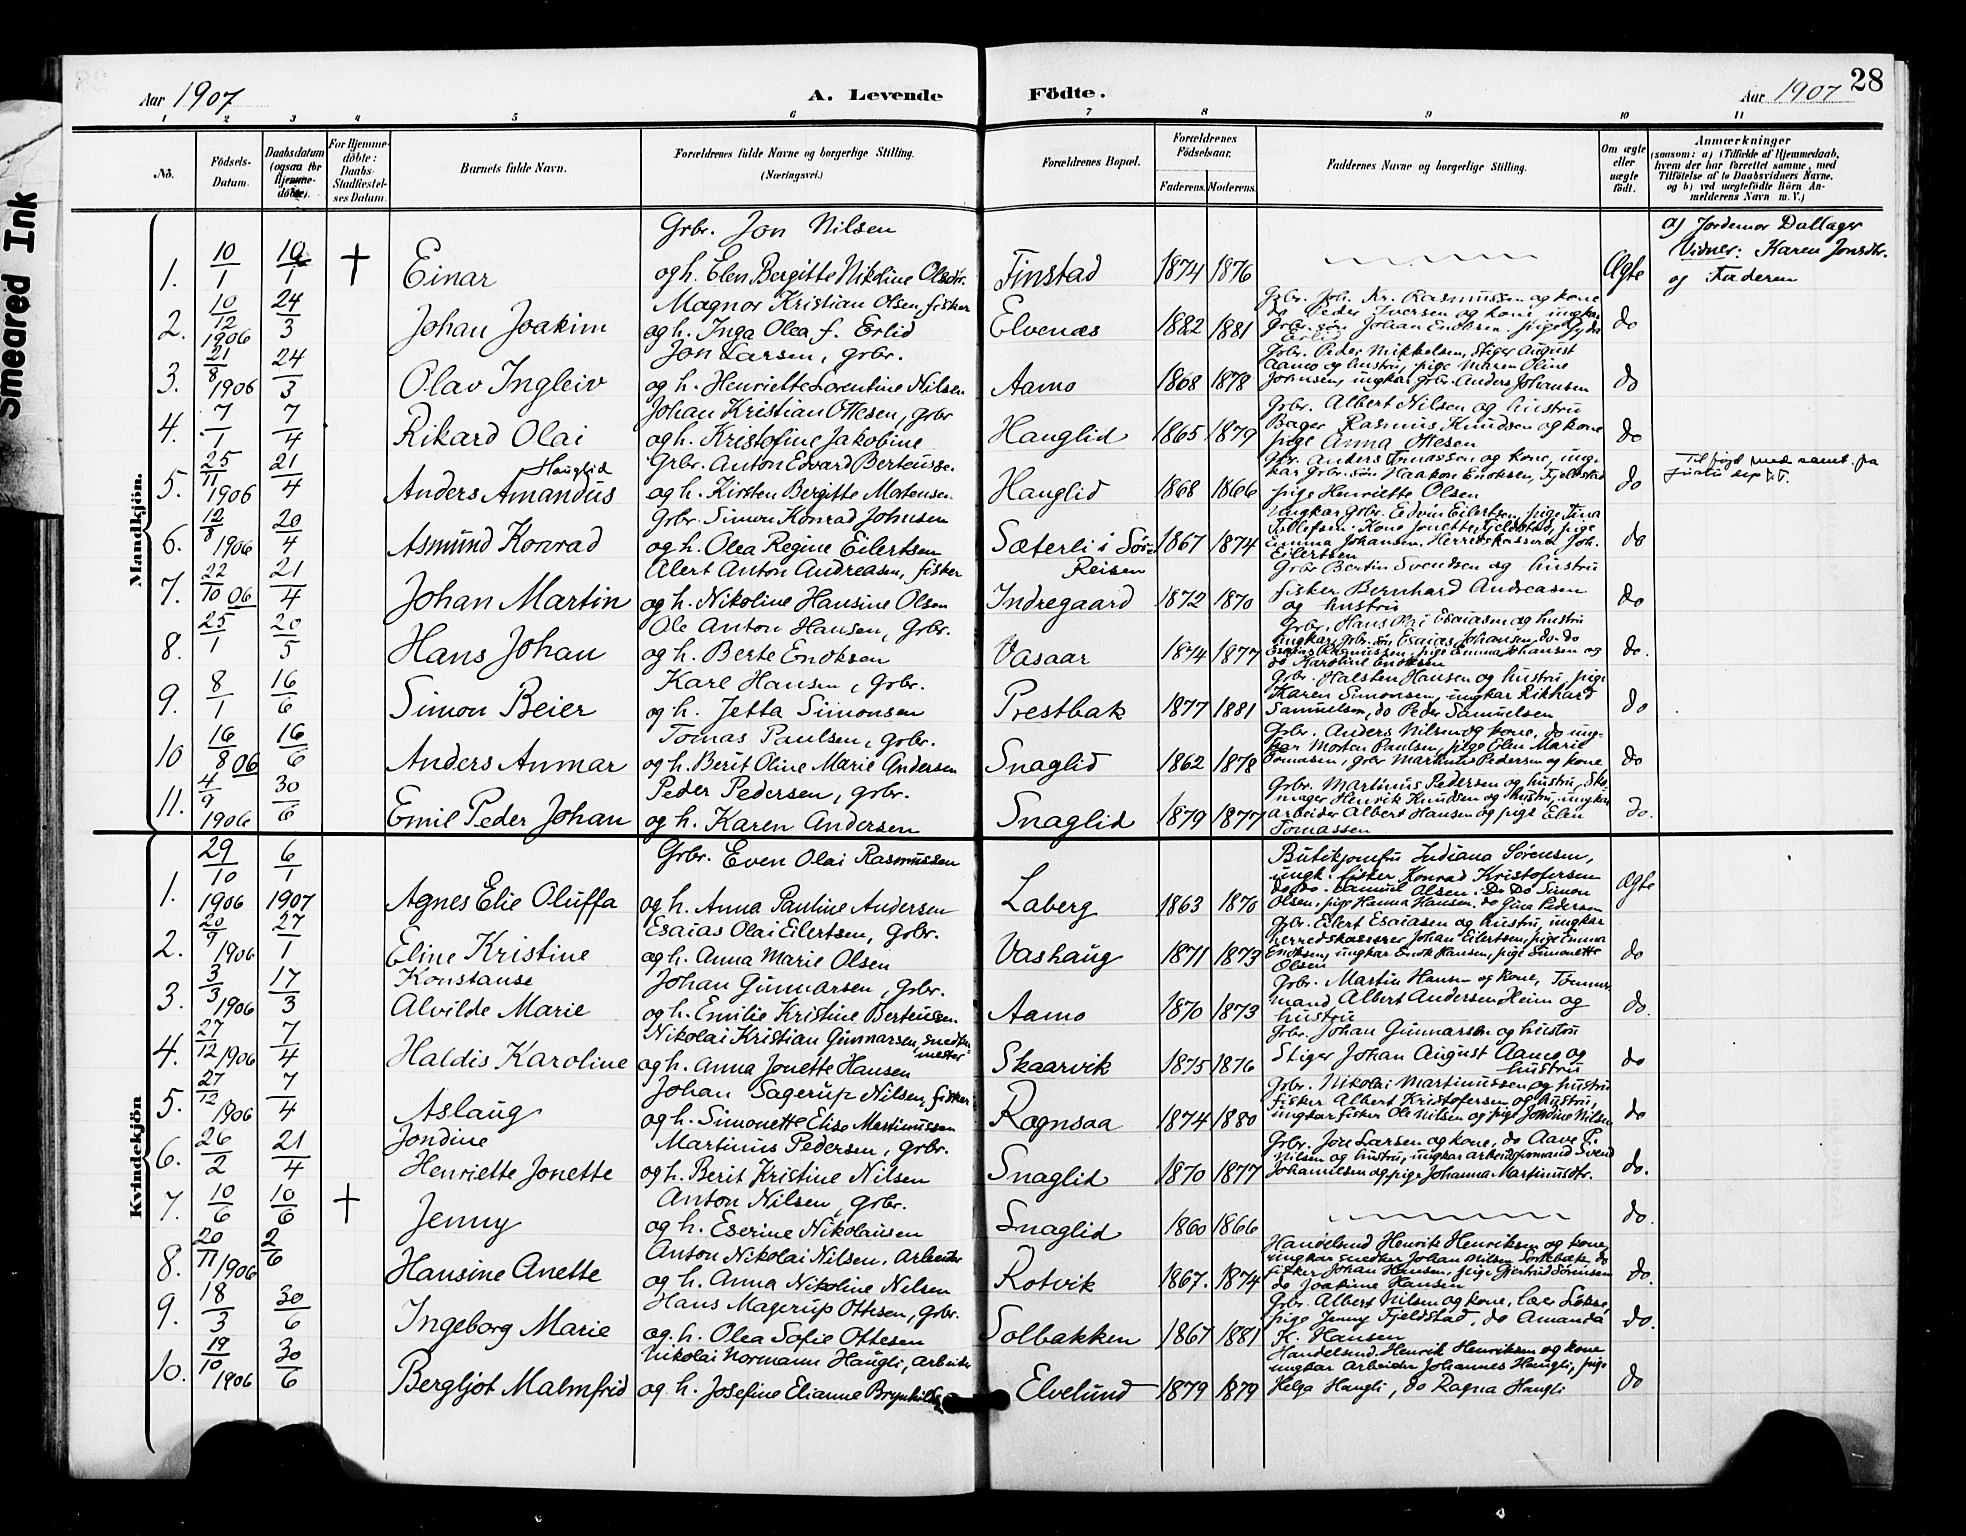 Smeared Ink
28
Aar 1907
A. Levende
Födte.
Aar 1907
1 2 3 4 5 6 7 8 9 10 11
No.
Födsels-
Datum.
Daabsdatum
(ogsaa for
Hjemme-
döbte).
For Hjemme-
döbte:
Daabs-
Stadfæstel-
ses Datum.
Barnets fulde Navn.
Forældrenes fulde Navne og borgerlige Stilling.
(Næringsvei.)
Forældrenes Bopæl.
Forældrenes
Födselsaar.
Faderens. Moderens.
Faddernes Navne og borgerlige Stilling.
Om ægte
eller
uægte
födt.
Anmærkninger
(saasom: a) i Tilfælde af Hjemmedaab,
hvem der har forrettet samme, med
Tilföielse af to Daabsvidners Navne.
og b) ved uægtefödte Börn An-
melderens Navn m.V.)
Mandkjön.
Grbr. Jon Nilsen
1. 10/1 10/1 † Einar og h. Elen Bergitte Nikoline Olsdtr. Finstad 1874 1876 Ægte
a) Jordemor Dallager
Vidner: Karen Jonsdtr.
og Faderen
Magnor Kristian Olsen, fisker
2. 10/12 1906 24/3 Johan Joakim og h. Inga Olea f. Erlid Elvenæs 1882 1881 do
Grbr. Joh. Kr. Rasmussen og kone
do Peder Iversen og kone, ungkar
Grbr. søn Johan Enoksen, pige Gyda
Erlid
Jon Larsen, grbr.
3. 21/8 1906 24/3 Olav Ingleiv og h. Henriette Lorentine Nilsen Aamo 1868 1878 do
Grbr. Peder Mikkelsen, Stiger August
Aamo og hustru, pige Maren Oline
Johnsen, ungkar grbr. Anders Johansen
Johan Kristian Ottesen, grbr
4. 7/1 7/4 Rikard Olai og h. Kristofine Jakobine Hanglid 1865 1879 do
Grbr. Albert Nilsen og hustru
Bager Rasmus Knudsen og kone
pige Anna Ottesen
Grbr. Anton Edvard Berteusse.
5. 25/11 1906 21/4 Anders Amandus Hauglid og h. Kirsten Bergitte Mortensen Hanglid 1868 1866 do
Grbr. Anders Tomassen og kone, ung-
kar grbr. søn Haakon Enoksen, Fjeldstad
pige Henriette Olsen
Grbr. Simon Konrad Johnsen
6. 12/8 1906 20/4 Asmund Konrad og h. Olea Regine Eilertsen Sæterli i Sør- Reisen 1867 1874 do
Ungkar Grbr. Edvin Eilertsen, pige Tina
Tollefsen. Kone Jonette Fjeldstad, pige
Emma Johansen. Herredskasserer Joh.
Eilertsen
Alert Anton Andreasen, fisker
7. 22/10 06 21/4 Johan Martin og h. Nikoline Hansine Olsen Indregaard 1872 1870 do
Grbr Bertin Svendsen og hustru
fisker Bernhard Andreasen
og hustru
Ole Anton Hansen, Grbr.
8. 25/1 20/5 Hans Johan og h. Berte Enoksen Vasaar 1874 1877 do.
Grbr. Hans Esaiasen og hustru
ungkar, grbr. søn Esaias Johansen, do. do
Rasmussen, pige Emma Johansen og
do Karoline Enoksen
Karl Hansen, Grbr.
9. 8/1 16/6 Simon Beier og h. Jetta Simonsen Prestbak 1877 1881 do
Grbr. Halsten Hansen og hustru, pige
Karen Simonsen, ungkar Rikhard
Samuelsen, do Peder Samuelsen
Tomas Paulsen, grbr.
10 16/8 06 16/6 Anders Anmar og h. Berit Oline Marie Andersen Snaglid 1862 1878 do
Grbr. Anders Nilsen og kone, do ung-
kar Morten Paulsen, pige Elen Marie
Tomasen, grbr Martinus Pedersen og kone
Peder Pedersen, grbr.
11. 4/9 1906 30/6 Emil Peder Johan og h. Karen Andersen Snaglid 1879 1877 do.
Grbr. Martinus Pedersen og hustru, Sko-
mager Henrik Knudsen og hustru, ungkar
arbeider Albert Hansen og pige Elen
Tomassen
Kvindekjön
Grbr. Even Olai Rasmussen
1. 29/10 1906 6/1 1907 Agnes Elie Oluffa og h. Anna Pauline Andersen Laberg 1863 1870 ægte
Butikjomfru Indiana Sørensen,
ungk. fisker Konrad Kristofersen
do do. Samuel Olsen. Do Do Simon
Olsen, pige Hanna Hansen, do Gina Pedersen
Esaias Olai Eilertsen, Grbr.
2. 20/9 1906 27/1 Eline Kristine og h. Anna Marie Olsen Vashaug 1871 1873 do
Grbr. Eilert Esaiasen og hustru, ungkar
herredskasserer Johan Eilertsen, pige Emma
Enoksen, ungkar Enok Hansen, pige Simonette
Olsen
Johan Gunnarsen, Grbr.
3. 3/3 1906 17/3 Konstanse Alvilde Marie og h. Emilie Kristine Berteusen Aamo 1870 1873 do.
Grbr. Martin Hansen og kone, Tømmer
mand Albert Andersen Heim og
hustru
Nikolai Kristian Gunnarsen, smed
mester
4. 27/12 1906 7/4 Haldis Karoline og h. Anna Jonette Hansen Skaarvik 1875 1876 do
Grbr. Johan Gunnarsen og hustru
Stiger Johan August Aamo og
hustru
Johan Sagerup Nilsen, fisker
5. 27/12 1906 7/4 Aslaug og h. Simonette Elise Martinussen Ragnsaa 1874 1880 do
Grbr. Nikolai Martinussen og hustru
fisker Albert Kristofersen og hustru,
ungkar fisker Ole Nilsen og pige Jondine Nilsen
Martinus Pedersen, grbr.
6. 26/2 21/4 Jondine Henriette Jonette og h. Berit Kristine Nilsen Snaglid 1870 1877 do.
Grbr. Jon Larsen og kone, do Aave P.
Nilsen og hustru, ungkar arbeidsformand Svend
Johannesen og pige Johanna Martinusdtr.
Anton Nilsen, grbr.
7. 10/6 10/6 † Jenny og h. Eserine Nikolaisen Snaglid 1860 1866 do.
Anton Nikolai Nilsen, Arbeider
8. 20/11 1906 2/6 Hansine Anette og h. Anna Nikoline Nilsen Rotvik 1867. 1874 do.
Handelsmd Henrik Henriksen og kone,
ungkar snedker Johan Nilsen Sortebæk, do
fisker Johan Hansen, pige Gjertrud Sørensen
do Joakime Hansen
Hans Magerup Ottesen, grbr.
9. 18/3 30/6 Ingeborg Marie og h. Olea Sofie Ottesen Solbakken 1867 1881 do.
Grbr. Albert Nilsen og kone, lærer Løkse,
pige Jenny Fjeldstad, do Amanda
K. Hansen
Nikolai Normann Haugli, arbeider
10. 19/10 1906 30/6 Bergljot Malmfrid og h. Josefine Elianne Brynhilds Elvelund 1879 1879 do
Handelsmd. Henrik Henriksen og kone
ungkar Arbeider Johannes Haugli, pige
Helga Haugli, do Ragna Haugli